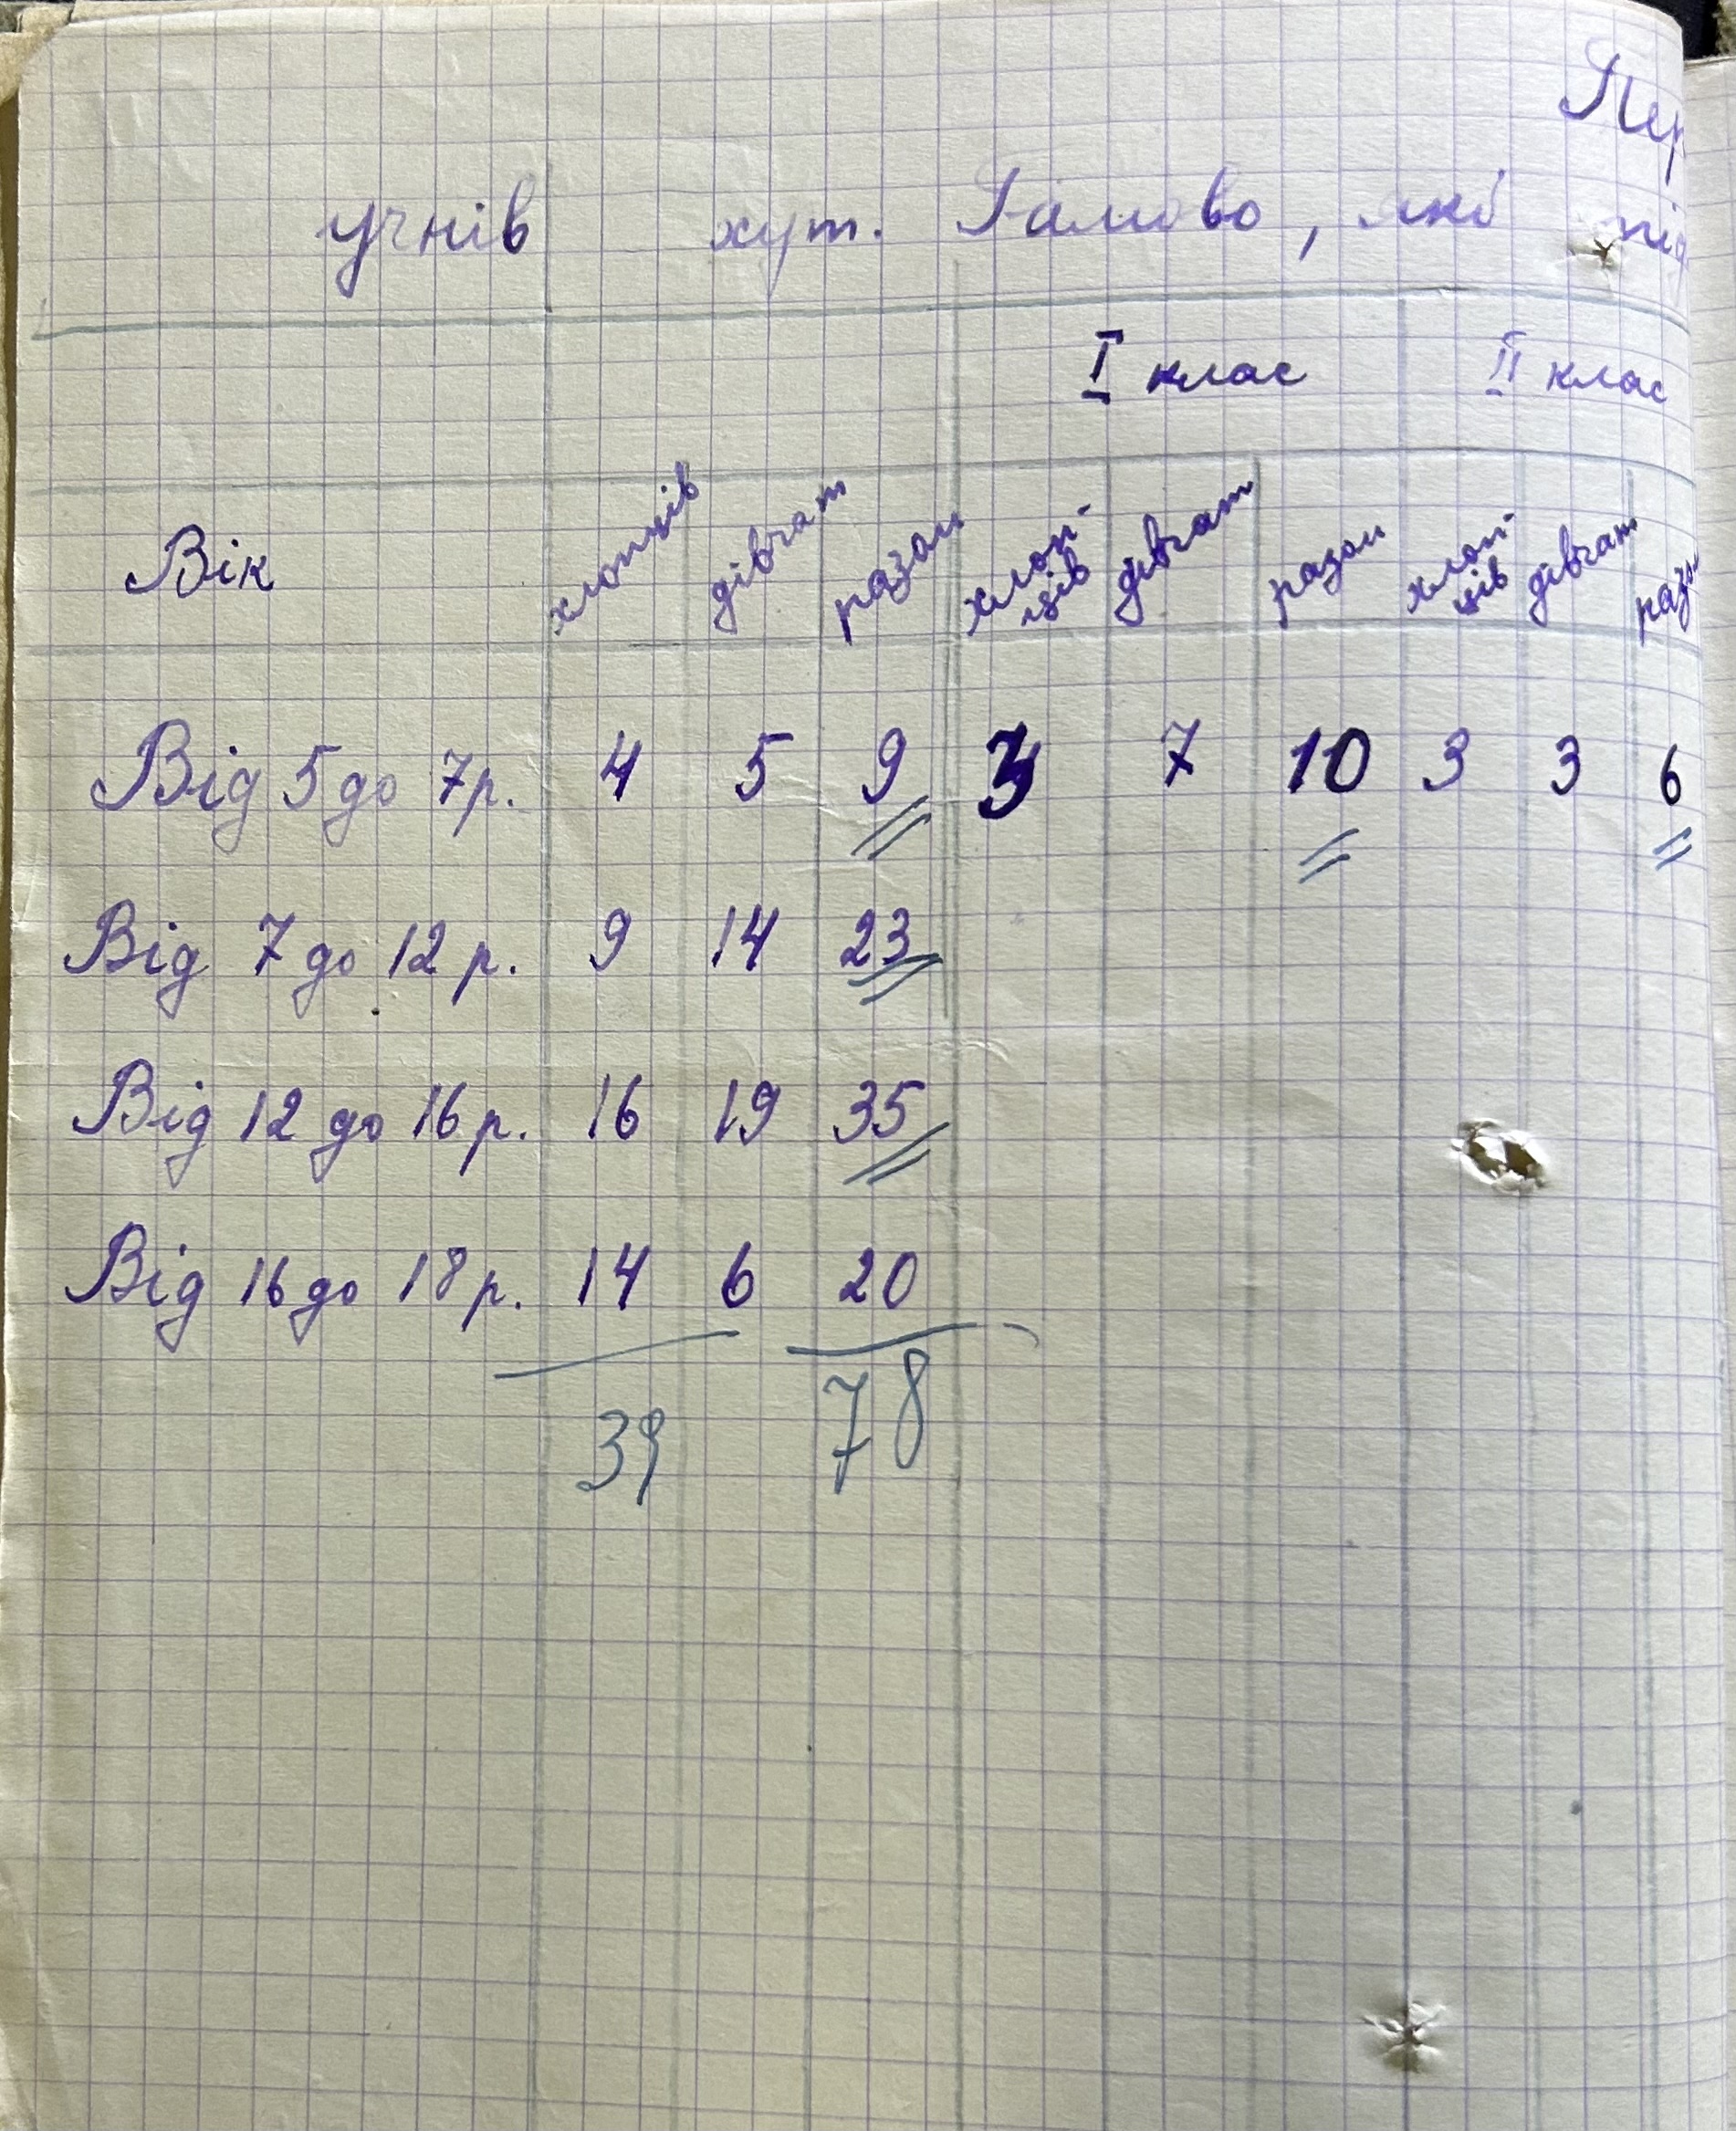 Пер
учнів хут. , які під
I клас II клас
Вік хлопців дівчат разом хлоп-ців дівчат разом хлоп-ців дівчат разом
Від 5 до 7 р. 4 5 9 3 7 10 3 3 6
Від 7 до 12 р. 9 14 23
Від 12 до 16 р. 16 19 35
Від 16 до 18 р. 14 6 20
39 78